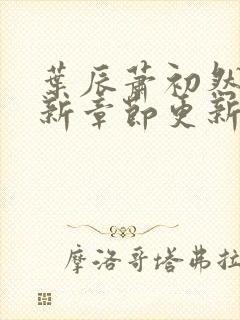 葉辰蕭初然
新章節更新
摩洛哥塔弗拉